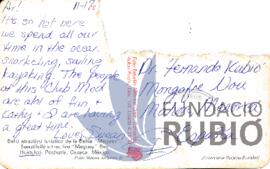 Hi!
11-17/8
Its so hot here
we spend all our
time in the ocean
snorkeling, sailing
kayaking. The people
at this Club Med
are alot of fun &
Kathy & I are having
a great time.
Love, Susan
Dr. Fernando Rubió
Mongofre Nou
Mahon, Menorca
España
FUNDACIÓ
RUBIÓ
Bello atractivo turístico de la Bahía "Maguey"
Beautiful Bay "Maguey"
Huatulco, Pochutla, Oaxaca, México.